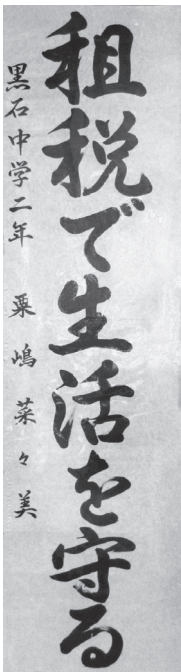 租税で生活を守る
黒石中学二年 粟嶋菜々美